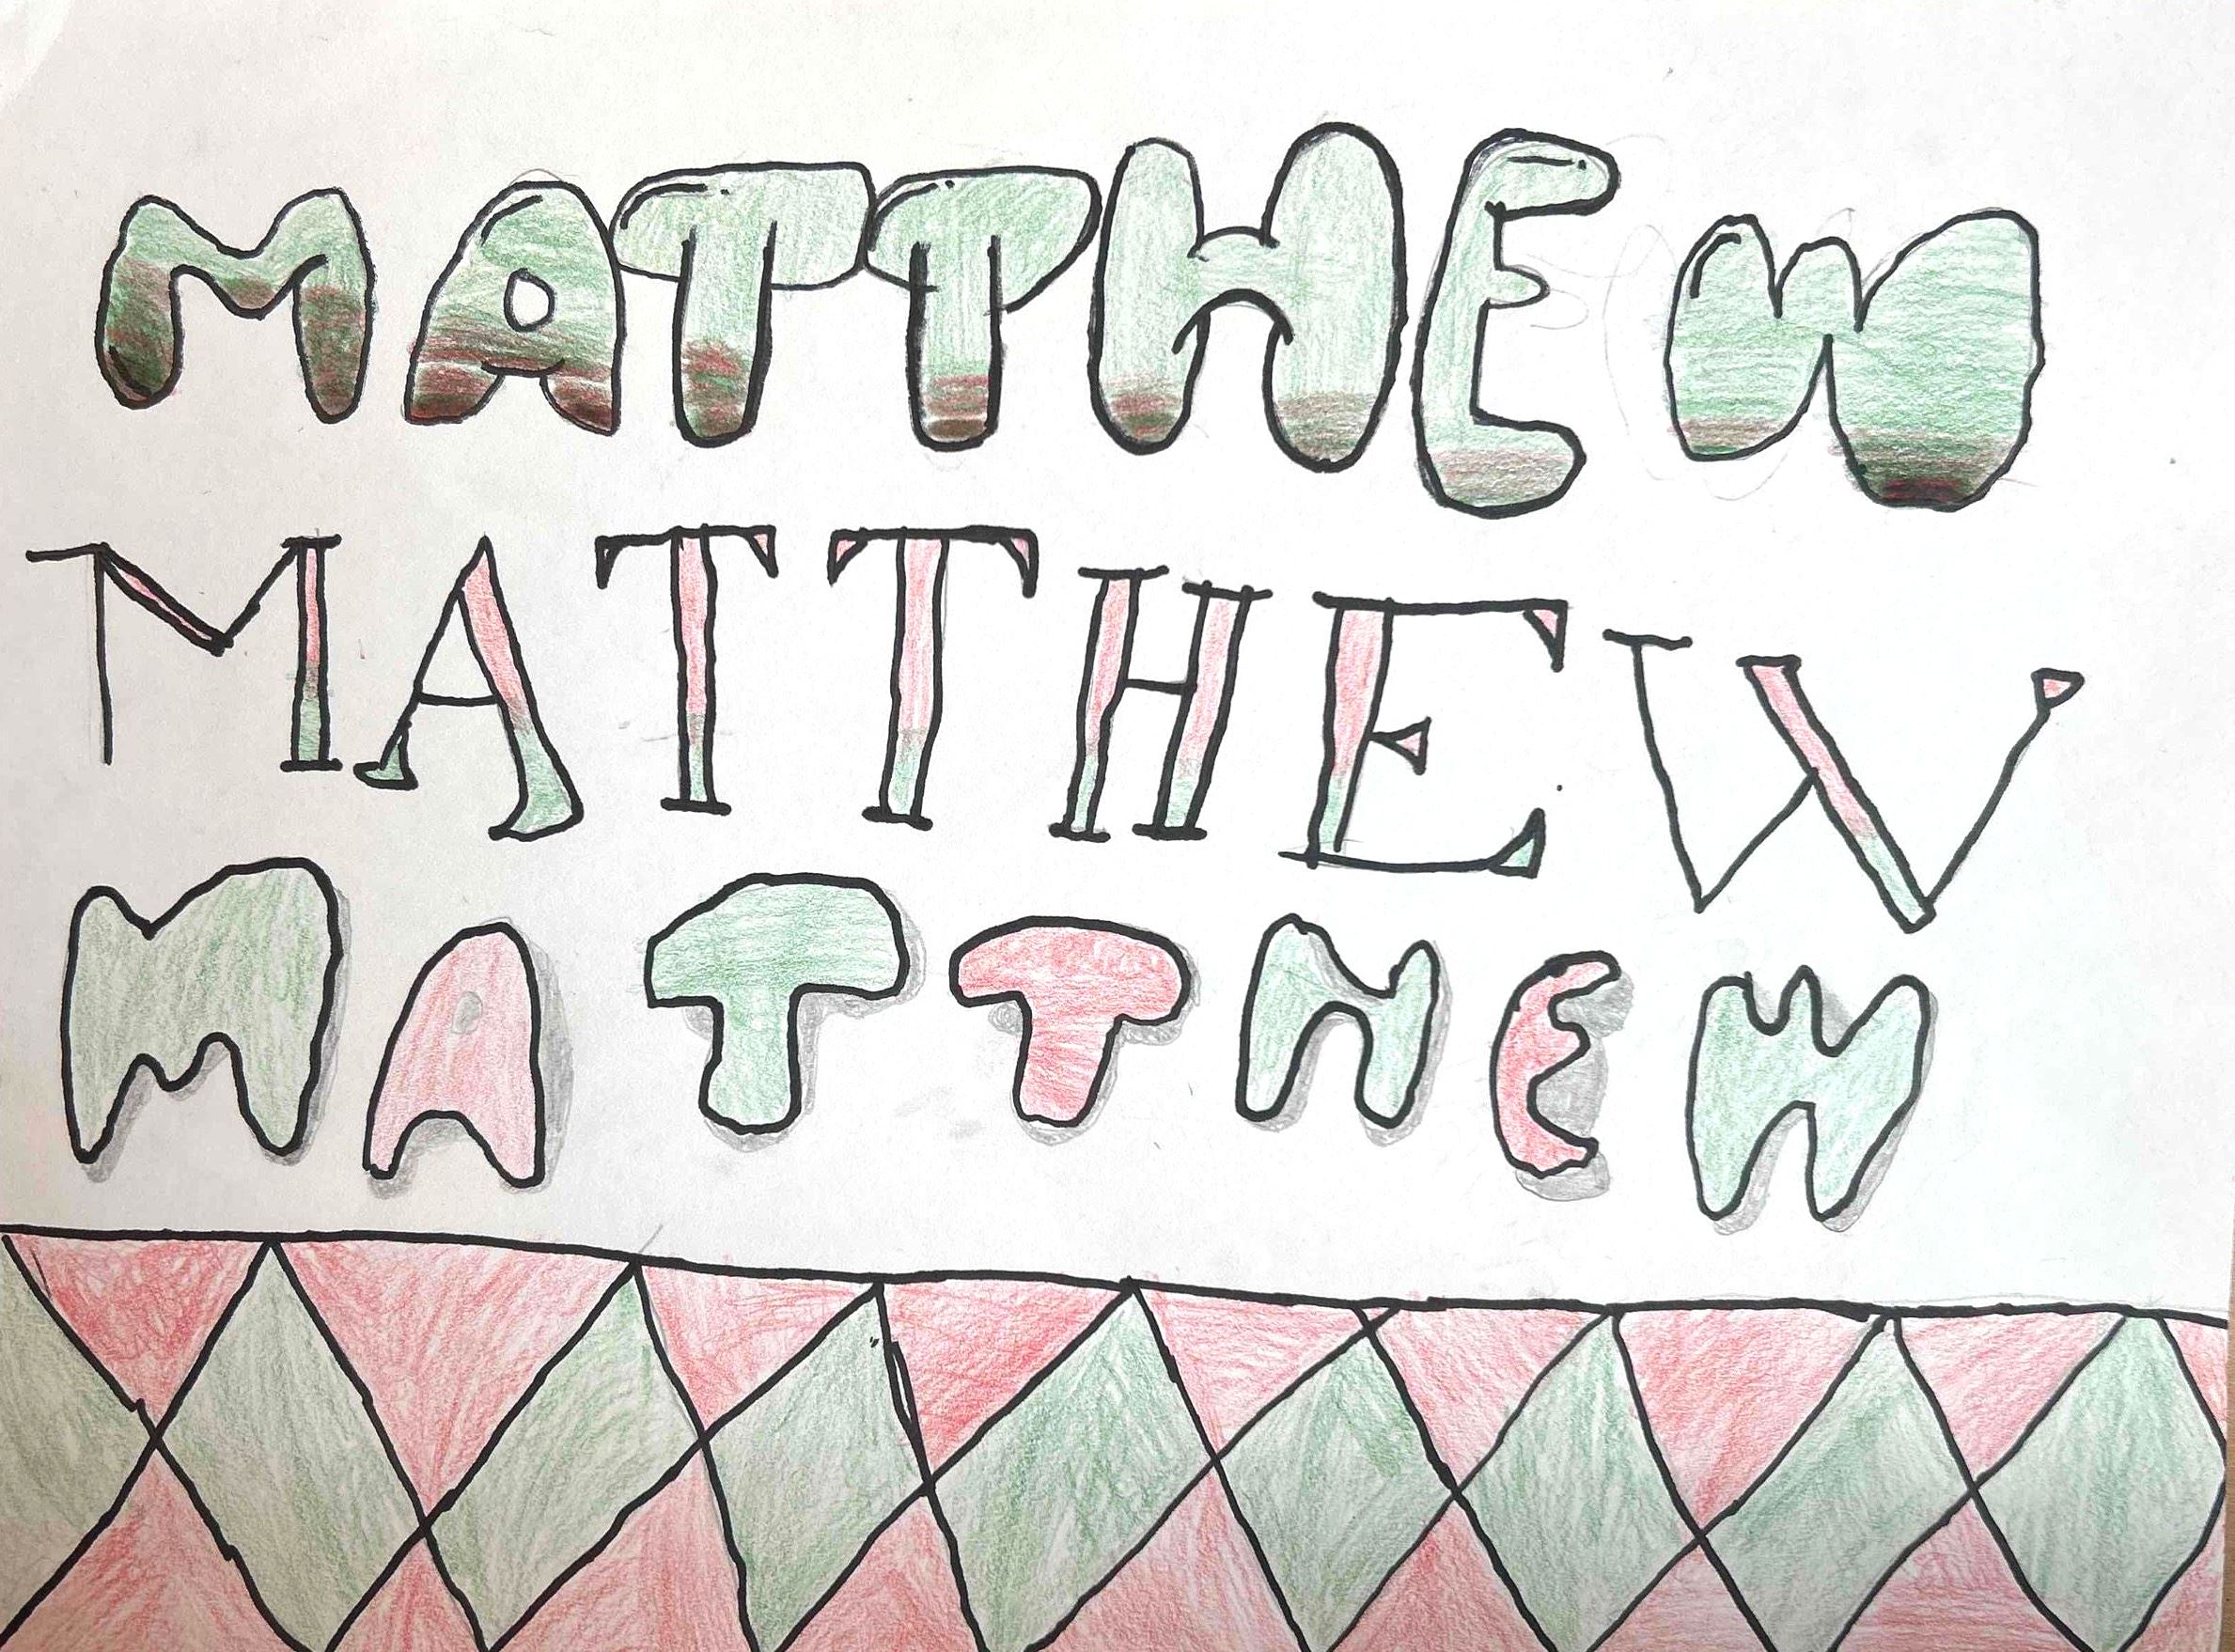 MATTHEW
MATTHEW
MATTHEW